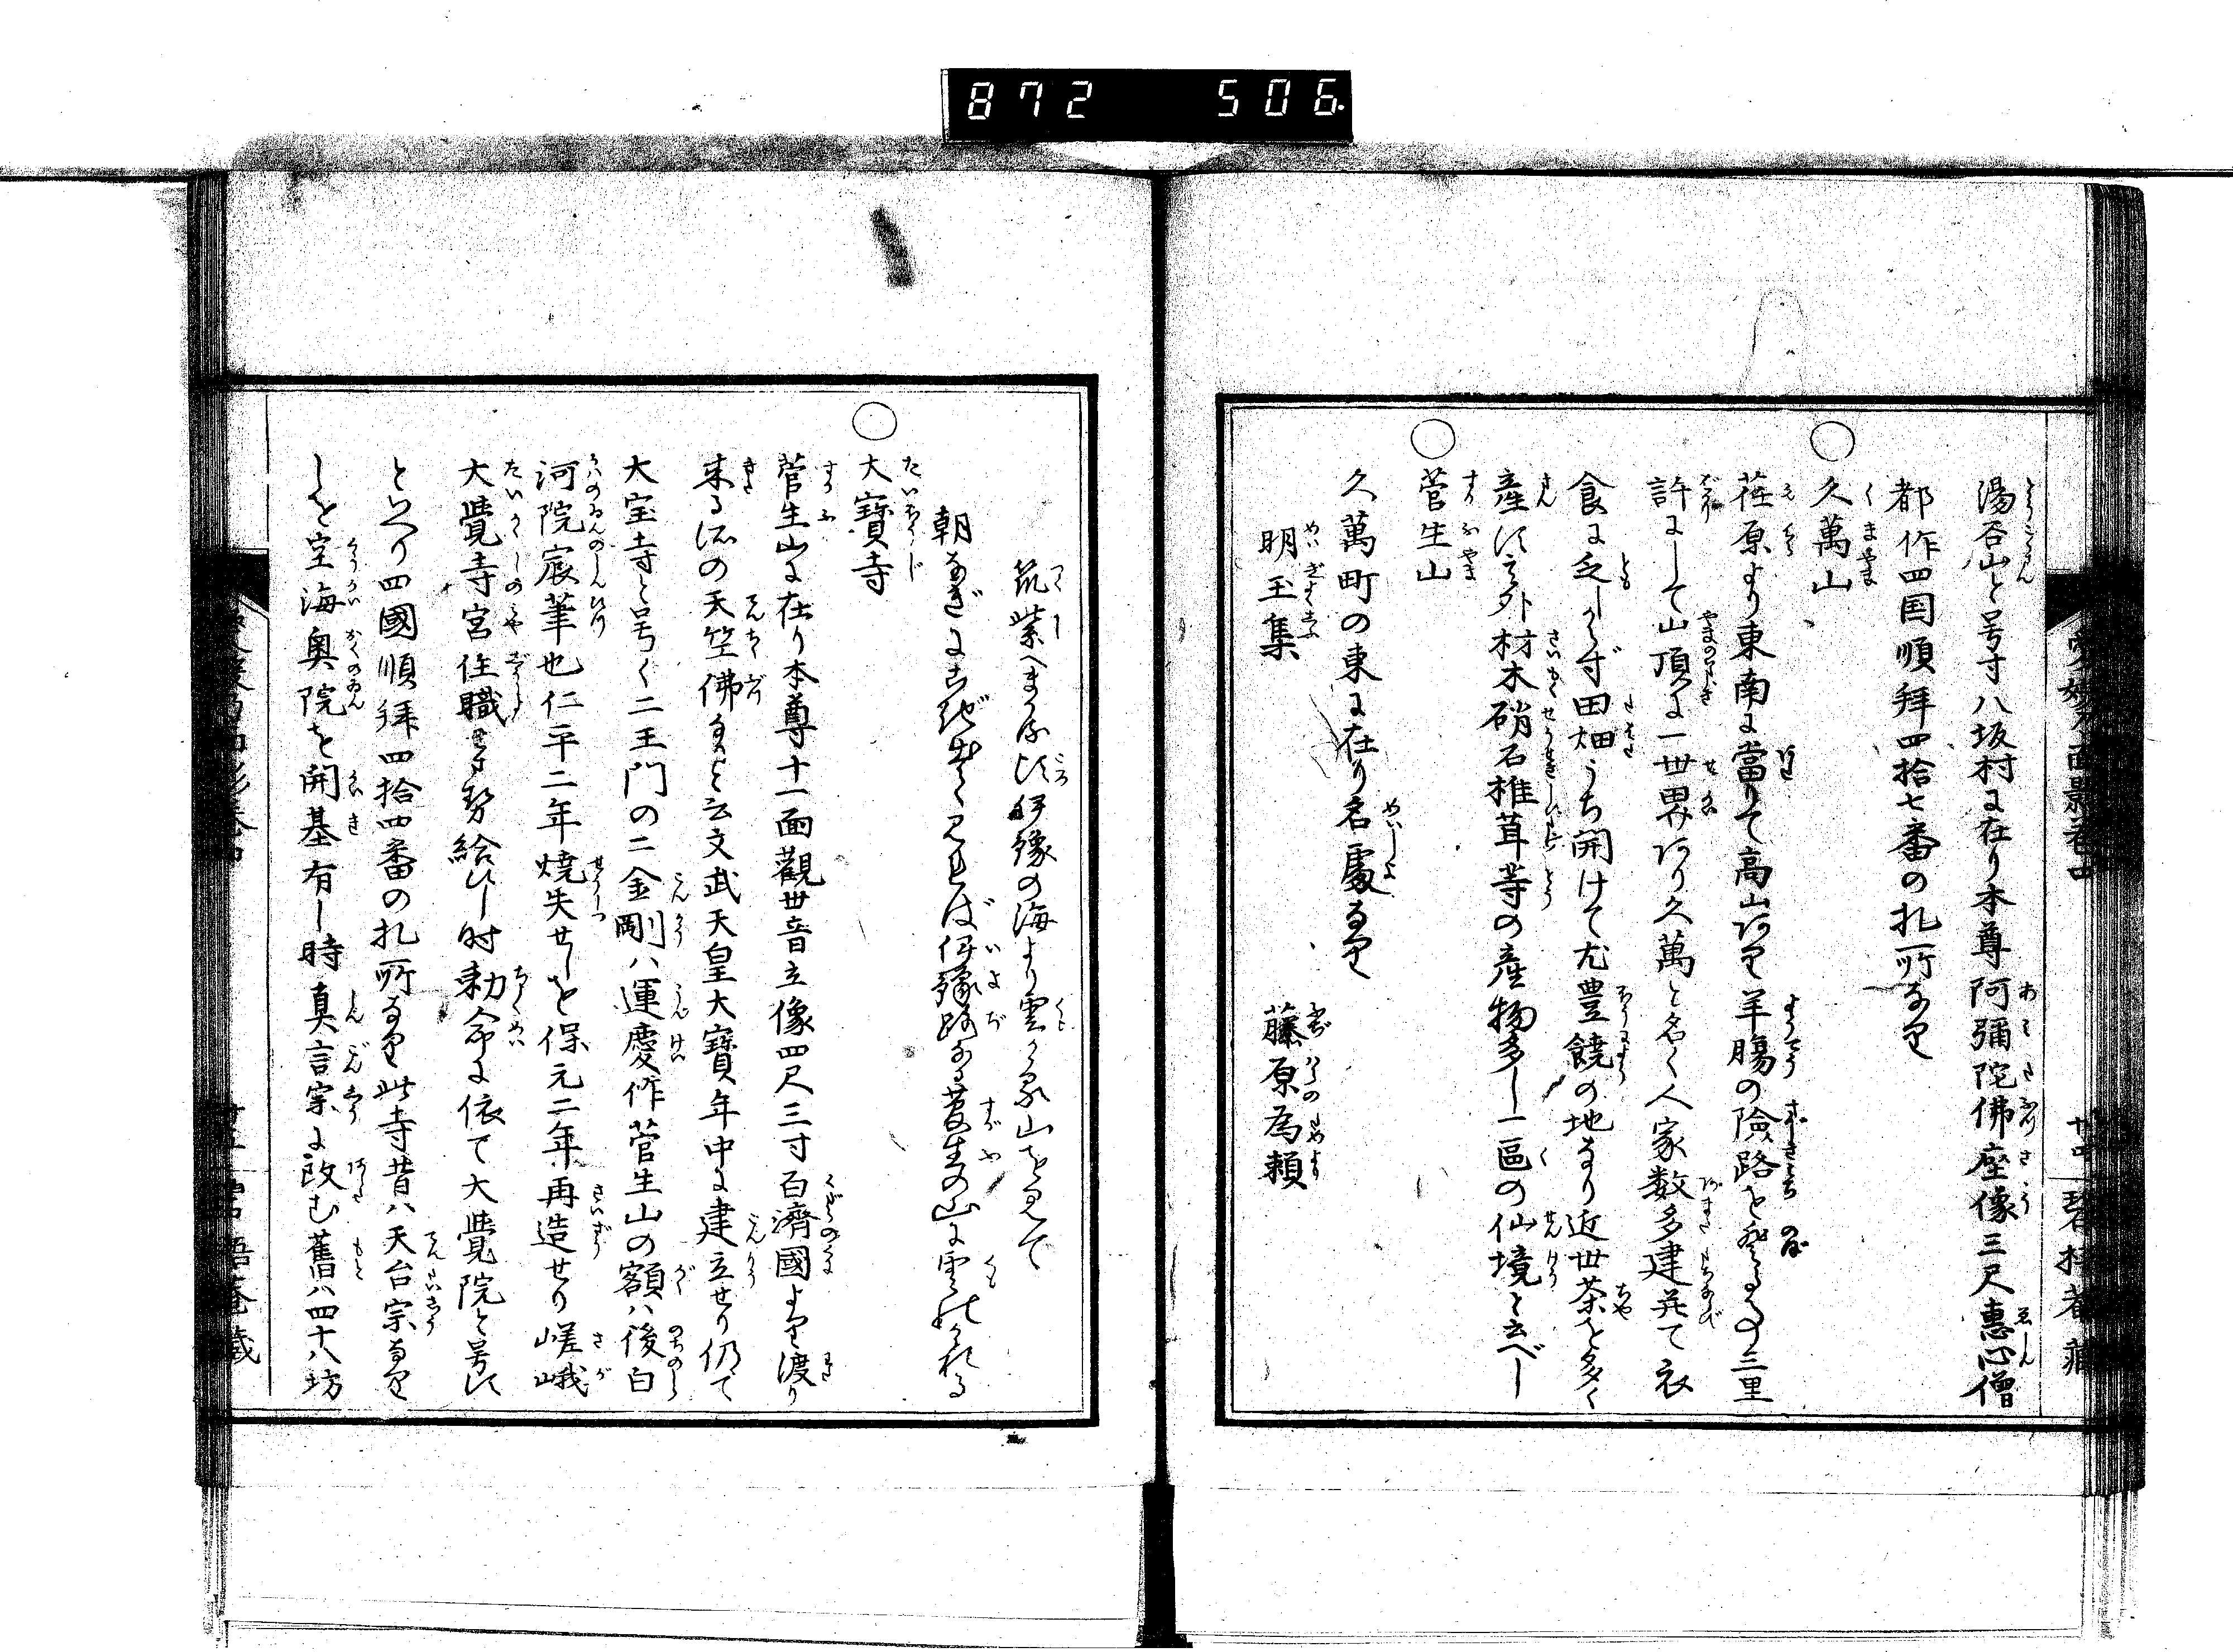 872 506
湯吞山と号す八坂村に在り本尊阿彌陀佛座像三尺惠心僧
都作四国順拜四拾七番の札所なり
久萬山
荏原より東南に當りて高山あり羊腸の險路を登る事三里
許にして山頂に一世界あり久萬と名く人家数多建并て衣
食に乏しからず田畑うち開けて尤豊饒の地なり近世茶を多く
産す之外材木硝石椎茸等の産物多し一區の仙境と云べし
菅生山
久萬町の東に在り名處なり
明玉集 藤原為頼
筑紫へまかる頃伊豫の海より雲かゝる山を見て
朝なぎにこぎ出て見れば伊豫路なる菅生の山に雲のかゝれる
大寶寺
菅生山に在り本尊十一面觀世音立像四尺三寸百濟國より渡り
来る所の天竺佛なりと云文武天皇大寶年中に建立せり仍て
大宝寺と号く二王門の二金剛ハ運慶作菅生山の額ハ後白
河院宸筆也仁平二年燒失せしを保元二年再造せり嵯峨
大覺寺宮住職せ給ひし时勅命に依て大覺院と号す
といへり四國順拜四拾四番の札所なり此寺昔ハ天台宗なり
しを空海奥院を開基有し時真言宗に改む舊ハ四十八坊